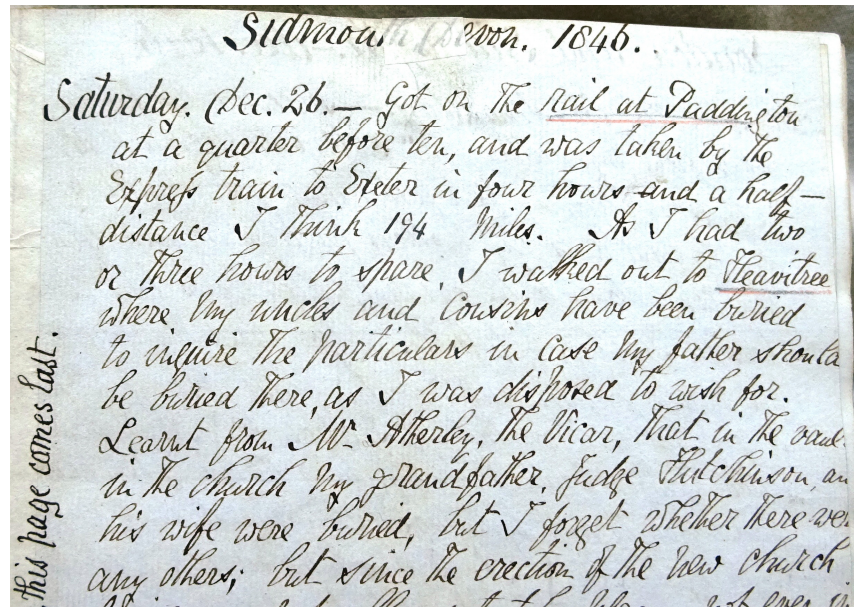 Sidmouth Devon. 1846.
Saturday. Dec. 26.— Got on the rail at Paddington
at a quarter before ten, and was taken by the
Express train to Exeter in four hours and a half—
distance I think 194 miles. As I had two
or three hours to spare, I walked out to Heavitree
where my uncles and cousins have been buried
to inquire the particulars in case my father should
be buried there, as I was disposed to wish for.
Learnt from Mr Atherley, the Vicar, that in the vaul
in the church my grandfather, Judge Hutchinson, an
his wife were buried, but I forget whether there wer
any others; but since the erection of the new church
this page comes last.